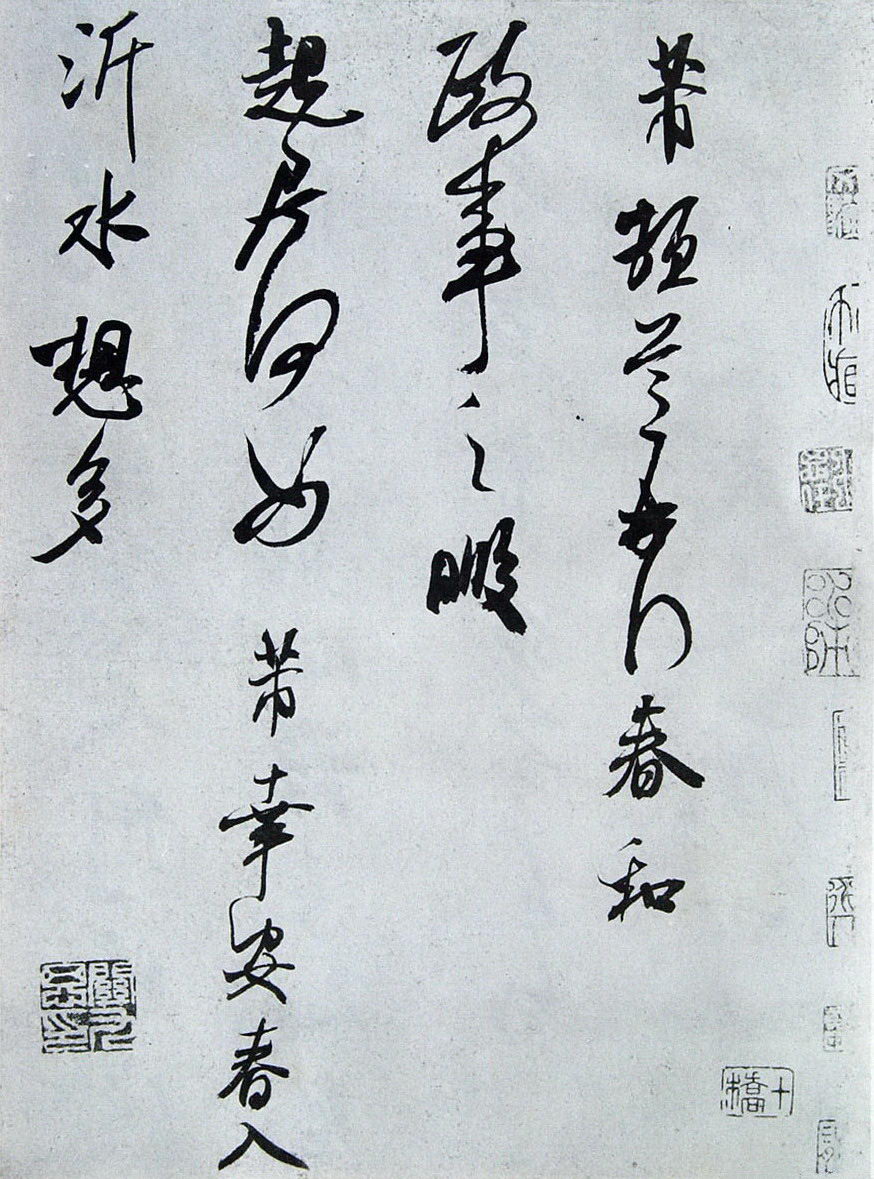 芾頓首再拜春和
政事之暇
起居何如 芾幸安春入
沂水想多
關九思印